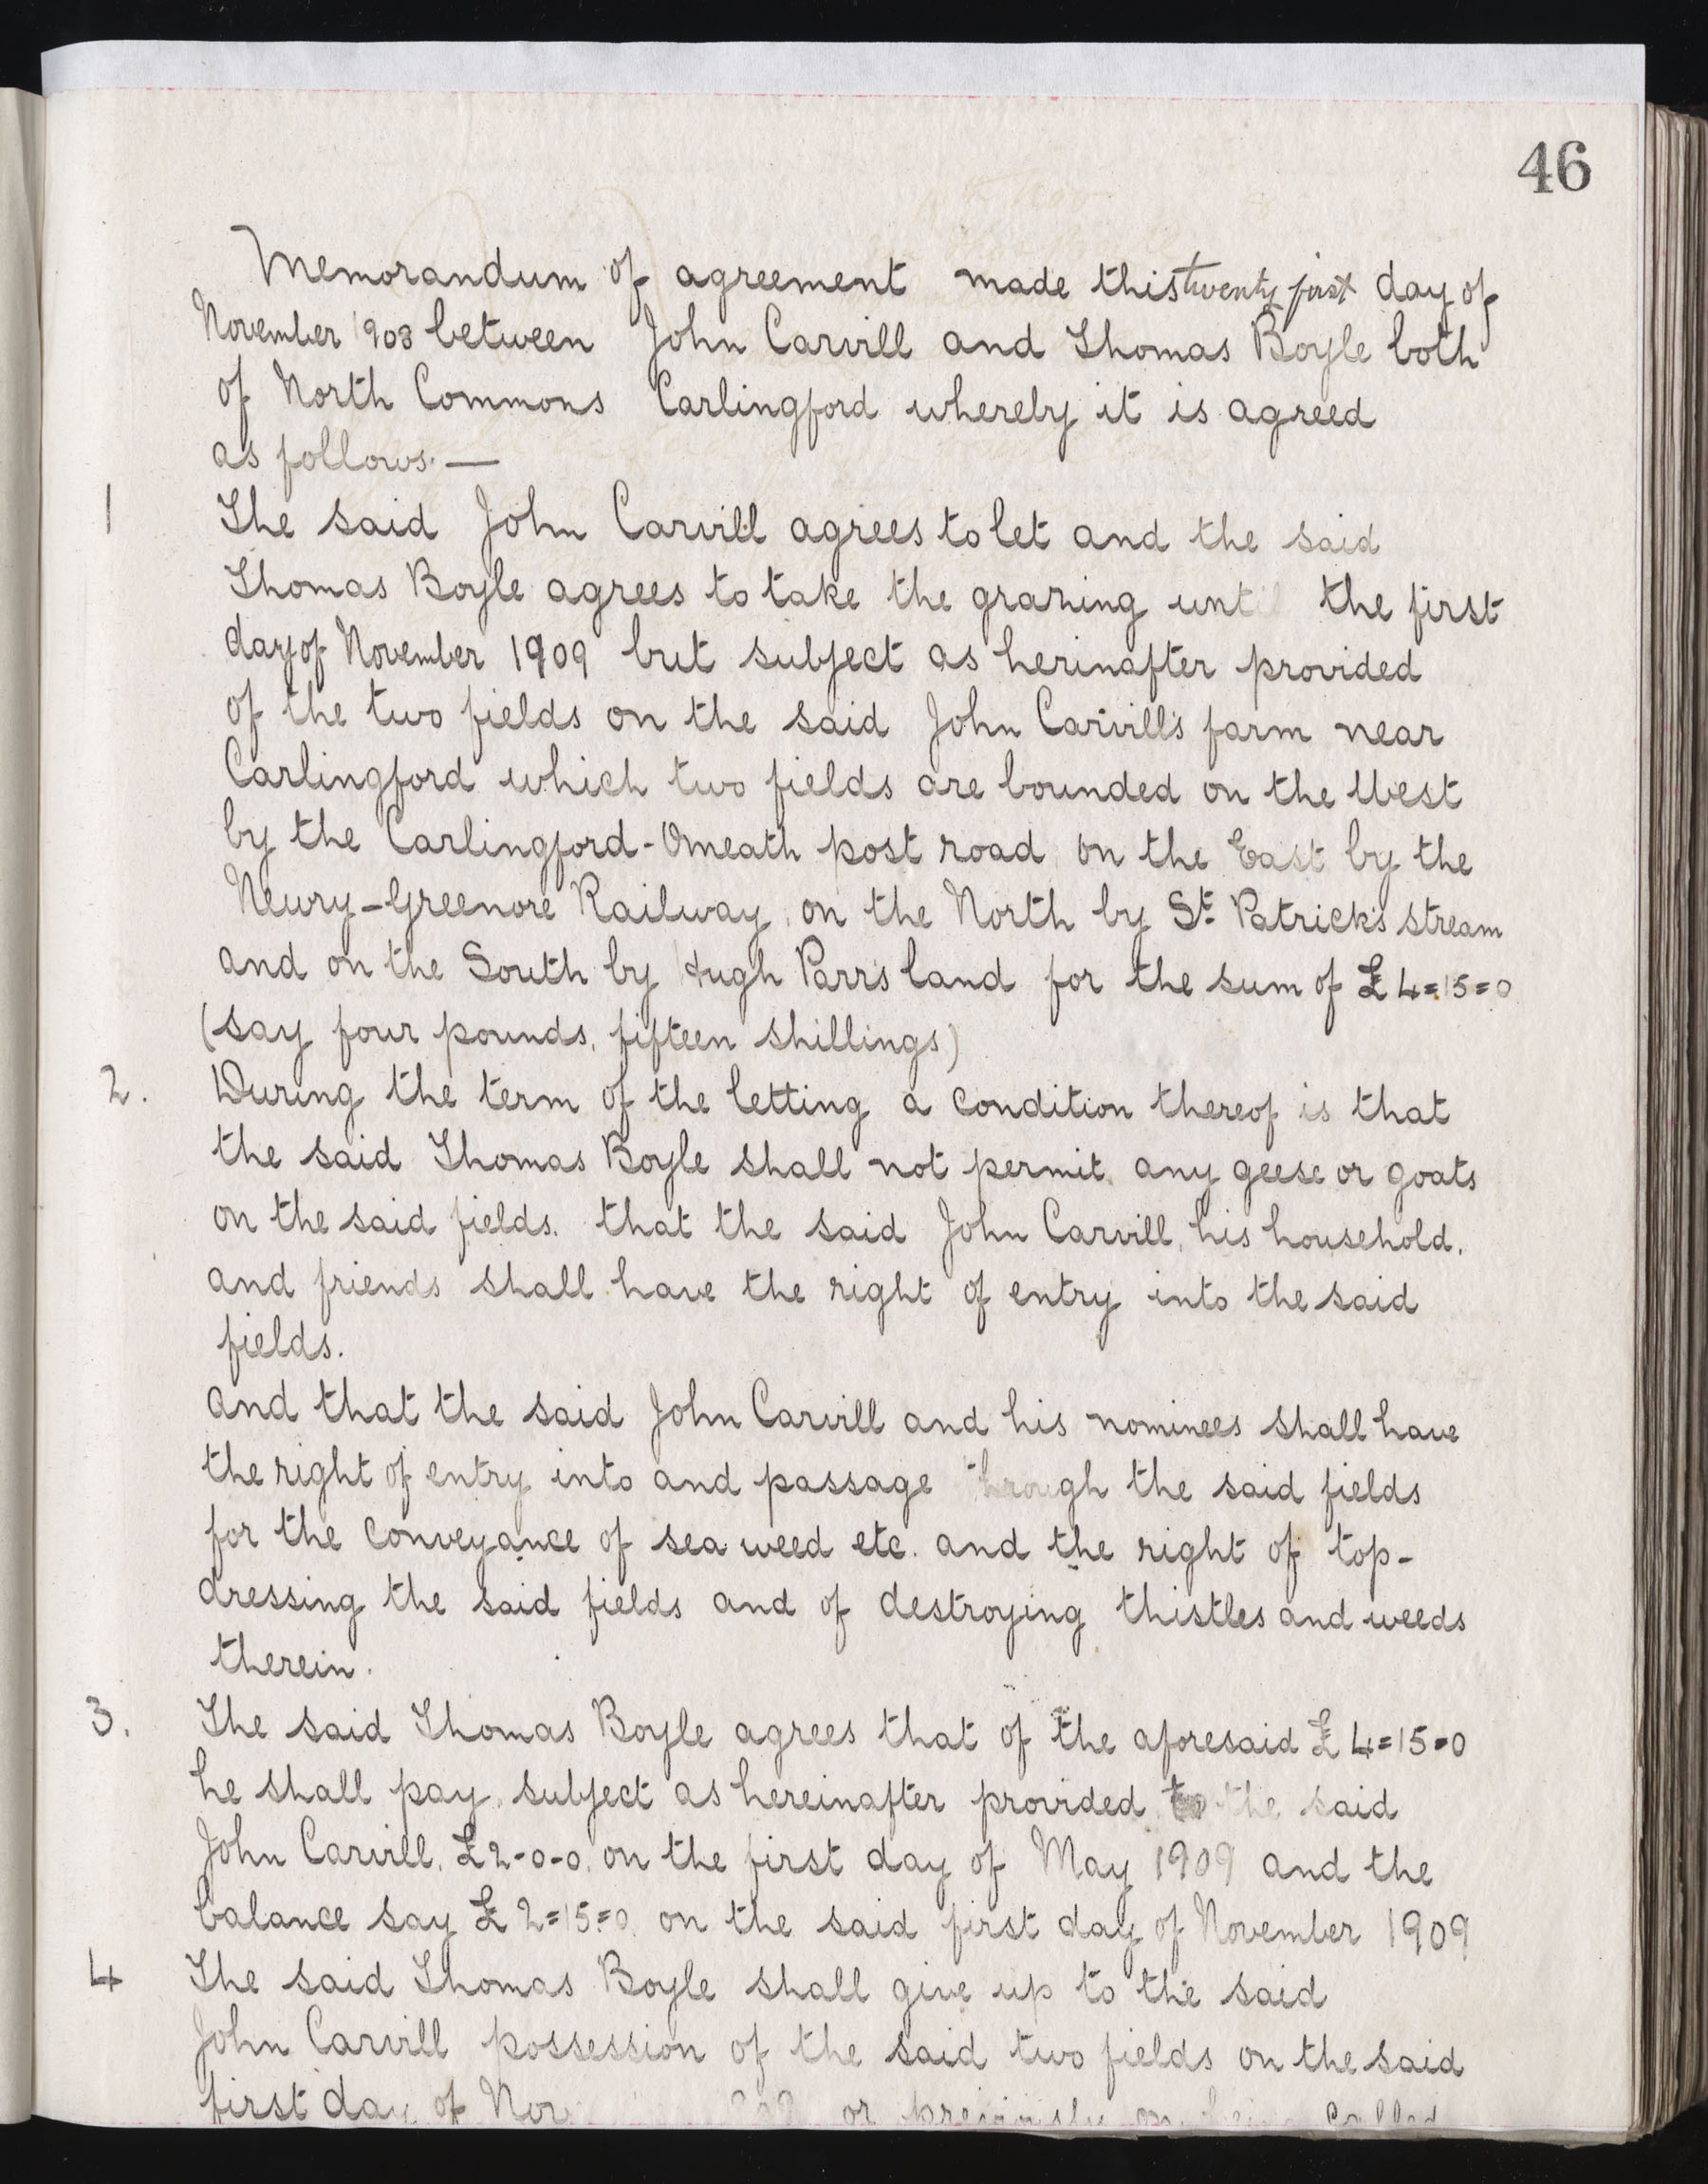 46
Memorandum of agreement made this twenty first day of
November 1908 between John Carvill and Thomas Boyle both
of North Commons Carlingford whereby it is agreed
as follows.—
1 The said John Carvill agrees to let and the said
Thomas Boyle agrees to take the grazing until the first
day of November 1909 but subject as herinafter provided
of the two fields on the said John Carvill's farm near
Carlingford which two fields are bounded on the West
by the Carlingford-Omeath post road, on the East by the
Newry-Greenore Railway, on the North by St. Patrick's stream
and on the South by Hugh Parr's land for the sum of £4=15=0
(say four pounds, fifteen shillings)
2. During the term of the letting a condition thereof is that
the said Thomas Boyle shall not permit any geese or goats
on the said fields. that the said John Carvill, his household,
and friends shall have the right of entry into the said
fields.
and that the said John Carvill and his nominees shall have
the right of entry into and passage through the said fields
for the conveyance of sea weed etc. and the right of top-
dressing the said fields and of destroying thistles and weeds
therein.
3. The said Thomas Boyle agrees that of the aforesaid £4=15=0
he shall pay, subject as hereinafter provided, to the said
John Carvill, £2-0-0, on the first day of May 1909 and the
balance say £2=15=0, on the said first day of November 1909
4 The said Thomas Boyle shall give up to the said
John Carvill possession of the said two fields on the said
first day of Nov or previously on being called